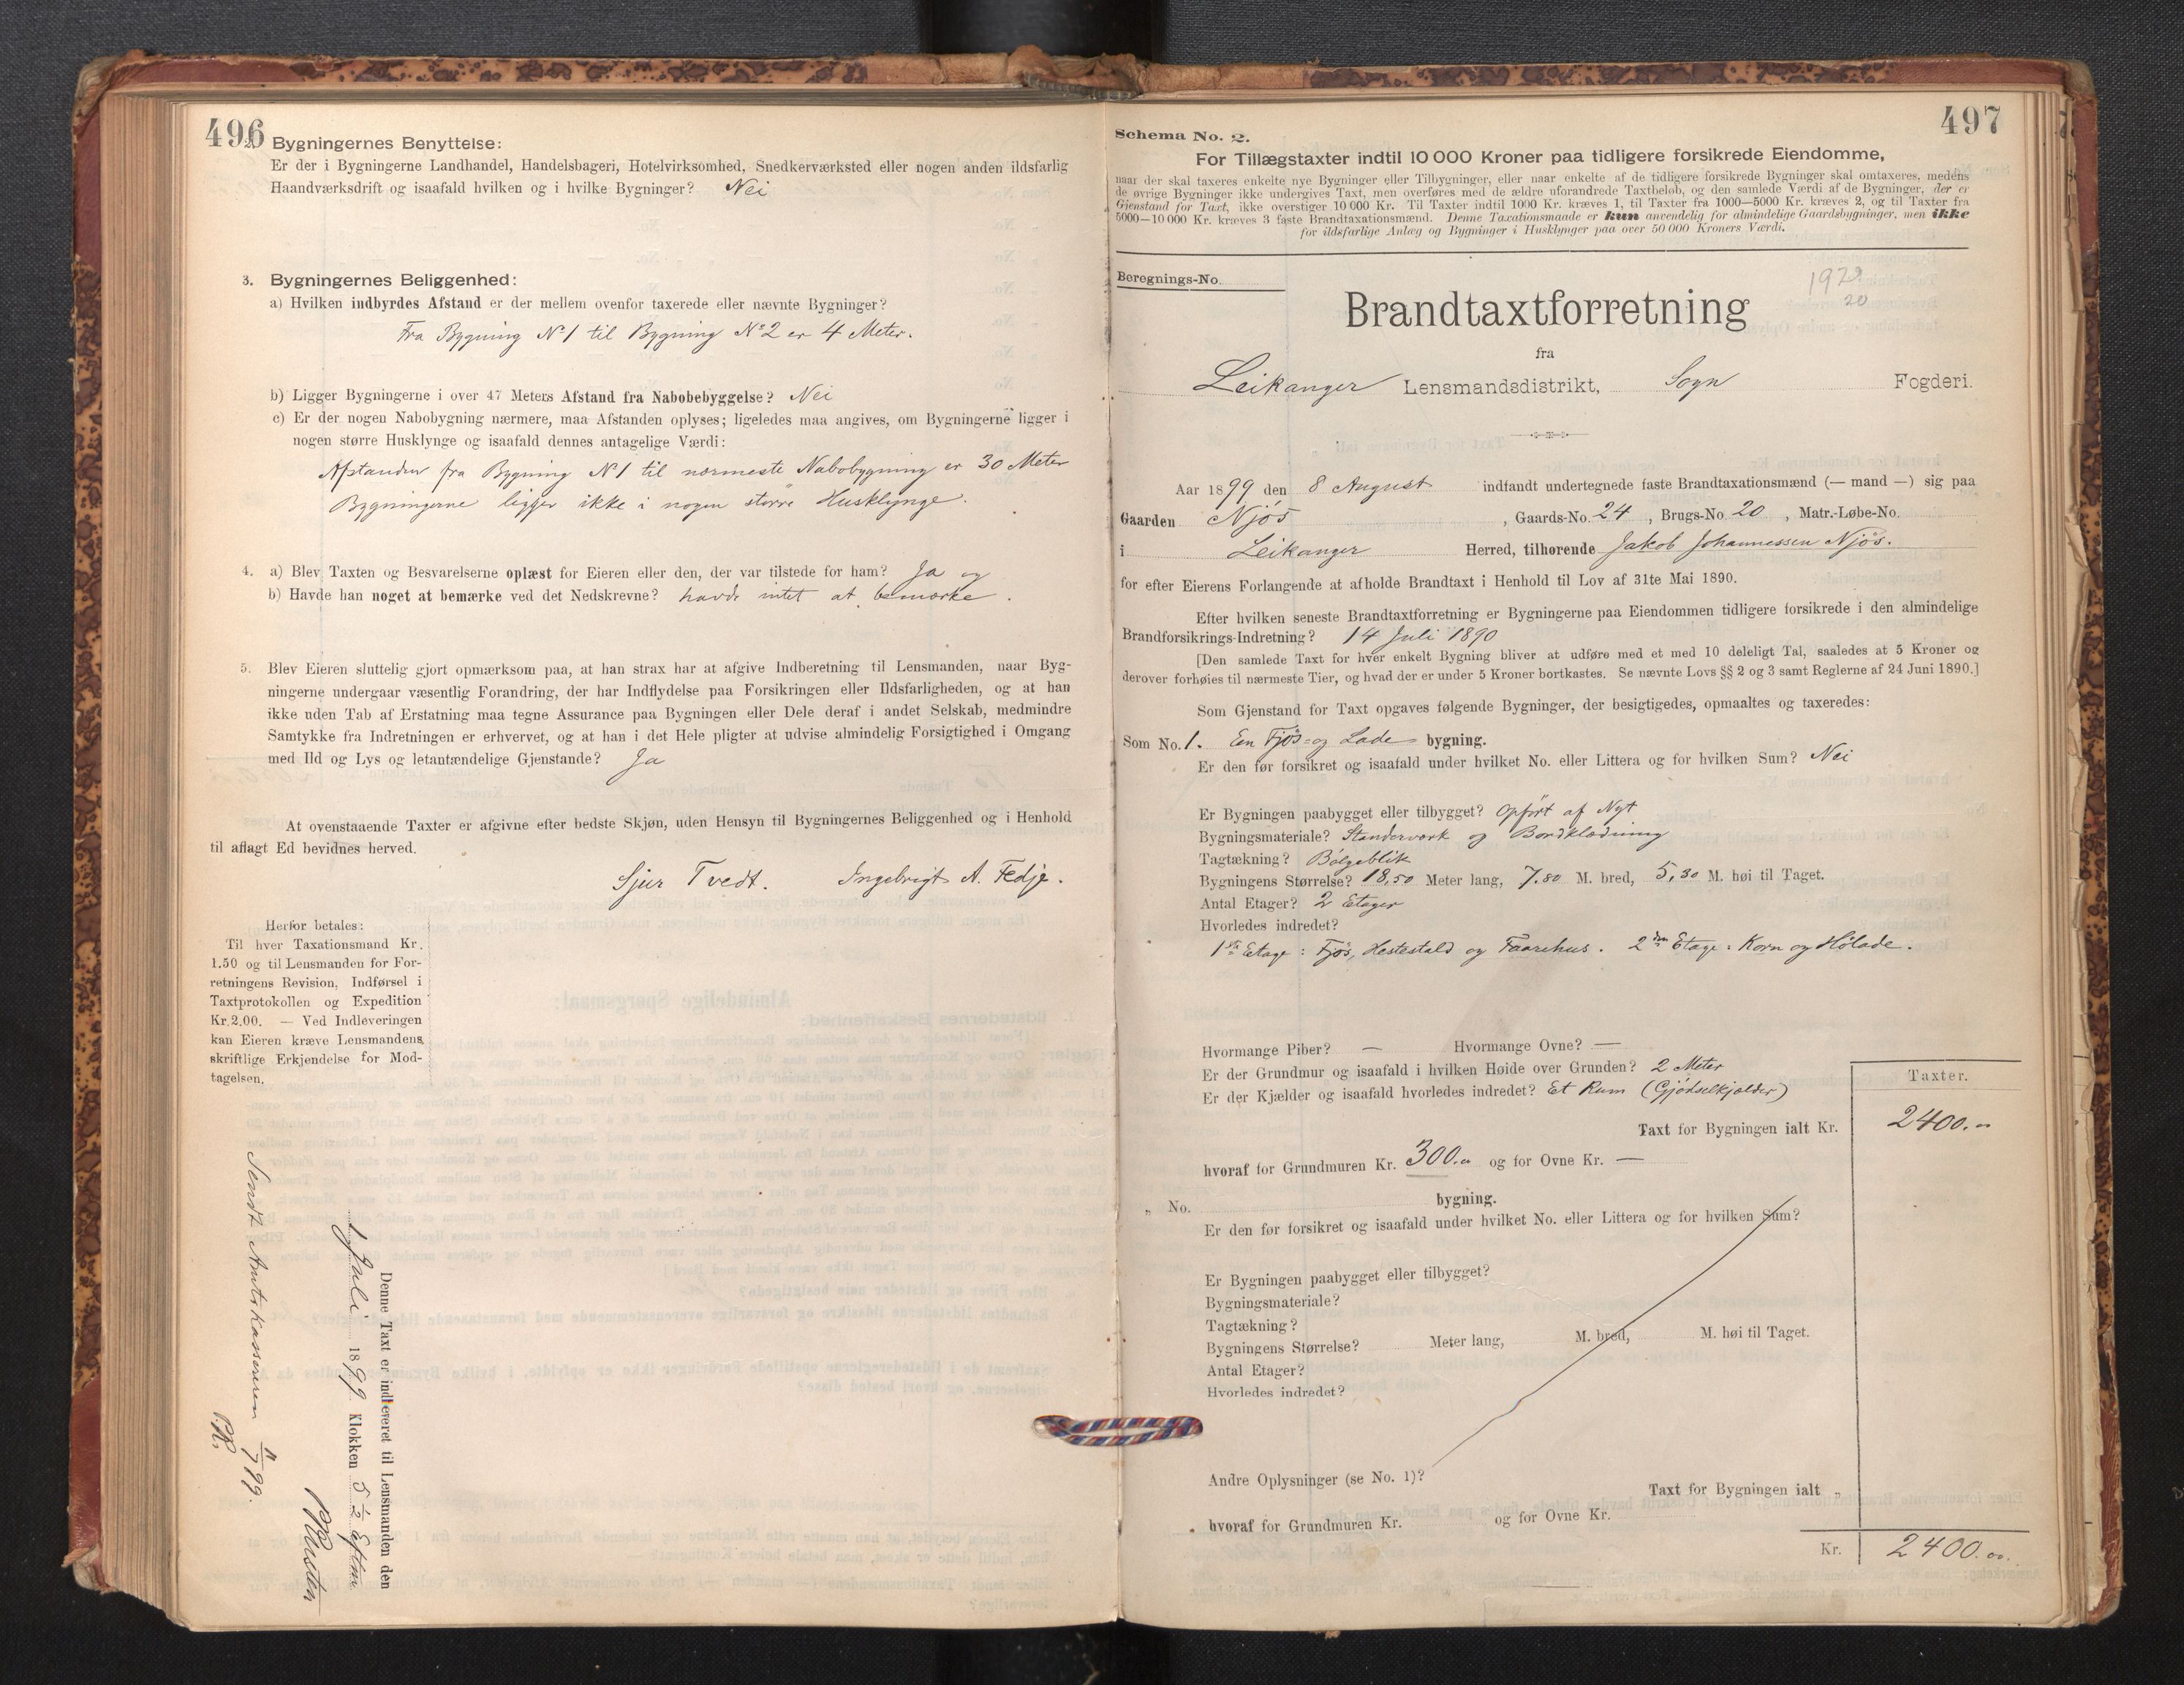 496
2. Bygningernes Benyttelse:
Er der i Bygningerne Landhandel, Handelsbageri, Hotelvirksomhed, Snedkerværksted eller nogen anden ildsfarlig
Haandværksdrift og isaafald hvilken og i hvilke Bygninger? Nei
3. Bygningernes Beliggenhed:
a) Hvilken indbyrdes Afstand er der mellem ovenfor taxerede eller nævnte Bygninger?
Fra Bygning No 1 til Bygning No 2 er 4 Meter.
b) Ligger Bygningerne i over 47 Meters Afstand fra Nabobebyggelse? Nei
c) Er der nogen Nabobygning nærmere, maa Afstanden oplyses; ligeledes maa angives, om Bygningerne ligger i
nogen større Husklynge og isaafald dennes antagelige Værdi:
Afstanden fra Bygning N 1 til nærmeste Nabobygning er 30 Meter
Bygningerne ligger ikke i nogen større Husklynge.
4. a) Blev Taxten og Besvarelserne oplæst for Eieren eller den, der var tilstede for ham? Ja og
b) Havde han noget at bemærke ved det Nedskrevne? havde intet at bemærke.
5. Blev Eieren sluttelig gjort opmærksom paa, at han strax har at afgive Indberetning til Lensmanden, naar Byg-
ningerne undergaar væsentlig Forandring, der har Indflydelse paa Forsikringen eller Ildsfarligheden, og at han
ikke uden Tab af Erstatning maa tegne Assurance paa Bygningen eller Dele deraf i andet Selskab, medmindre
Samtykke fra Indretningen er erhvervet, og at han i det Hele pligter at udvise almindelig Forsigtighed i Omgang
med Ild og Lys og letantændelige Gjenstande? Ja
At ovenstaaende Taxter er afgivne efter bedste Skjøn, uden Hensyn til Bygningernes Beliggenhed og i Henhold
til aflagt Ed bevidnes herved.
Sjur Tvedt. Ingebrigt A. Fedje.
Herfor betales:
Til hver Taxationsmand Kr.
1.50 og til Lensmanden for For-
retningens Revision, Indførsel i
Taxtprotokollen og Expedition
Kr. 2.00. — Ved Indleveringen
kan Eieren kræve Lensmandens
skriftlige Erkjendelse for Mod-
tagelsen.
Denne Taxt er indleveret til Lensmanden den
1 Juli 1899 Klokken 5 ½ Eftm
Sendt Amtskassereren 99.
497
Schema No. 2.
For Tillægstaxter indtil 10 000 Kroner paa tidligere forsikrede Eiendomme,
naar der skal taxeres enkelte nye Bygninger eller Tilbygninger, eller naar enkelte af de tidligere forsikrede Bygninger skal omtaxeres, medens
de øvrige Bygninger ikke undergives Taxt, men overføres med de ældre uforandrede Taxtbeløb, og den samlede Værdi af de Bygninger, der er
Gjenstand for Taxt, ikke overstiger 10 000 Kr. Til Taxter indtil 1000 Kr. kræves 1, til Taxter fra 1000—5000 Kr. kræves 2, og til Taxter fra
5000—10 000 Kr. kræves 3 faste Brandtaxationsmænd. Denne Taxationsmaade er kun anvendelig for almindelige Gaardsbygninger, men ikke
for ildsfarlige Anlæg og Bygninger i Husklynger paa over 50 000 Kroners Værdi.
Beregnings-No.
20
Brandtaxtforretning
fra
Leikanger Lensmandsdistrikt, Sogn Fogderi.
Aar 1899 den 8 August indfandt undertegnede faste Brandtaxationsmænd (— mand —) sig paa
Gaarden Njøs, Gaards-No. 24, Brugs-No. 20, Matr.-Løbe-No.
i Leikanger Herred, tilhørende Jakob Johannessen Njøs.
for efter Eierens Forlangende at afholde Brandtaxt i Henhold til Lov af 31te Mai 1890.
Efter hvilken seneste Brandtaxtforretning er Bygningerne paa Eiendommen tidligere forsikrede i den almindelige
Brandforsikrings-Indretning? 14 Juli 1890
[Den samlede Taxt for hver enkelt Bygning bliver at udføre med et med 10 deleligt Tal, saaledes at 5 Kroner og
derover forhøies til nærmeste Tier, og hvad der er under 5 Kroner bortkastes. Se nævnte Lovs §§ 2 og 3 samt Reglerne af 24 Juni 1890.]
Som Gjenstand for Taxt opgaves følgende Bygninger, der besigtigedes, opmaaltes og taxeredes:
Som No. 1. En Fjøs- og Lade- bygning.
Er den før forsikret og isaafald under hvilket No. eller Littera og for hvilken Sum? Nei
Er Bygningen paabygget eller tilbygget? Opført af Nyt
Bygningsmateriale? Standerværk og Bordklædning
Tagtækning? Bölgeblik
Bygningens Størrelse? 18,50 Meter lang, 7.80 M. bred, 5,30 M. høi til Taget.
Antal Etager? 2 Etager
Hvorledes indredet?
1ste Etage: Fjøs, Hestestald og Faarehus. 2den Etage: Korn og Hølade.
Hvormange Piber? — Hvormange Ovne? —
Er der Grundmur og isaafald i hvilken Høide over Grunden? 2 Meter
Er der Kjælder og isaafald hvorledes indredet? Et Rum (Gjødselkjælder)
Taxter.
Taxt for Bygningen ialt Kr. 2400.
hvoraf for Grundmuren Kr. 300. og for Ovne Kr. —
„ No. bygning.
Er den før forsikret og isaafald under hvilket No. eller Littera og for hvilken Sum?
Er Bygningen paabygget eller tilbygget?
Bygningsmateriale?
Tagtækning?
Bygningens Størrelse? Meter lang, M. bred, M. høi til Taget.
Antal Etager?
Hvorledes indredet?
Andre Oplysninger (se No. 1)?
Taxt for Bygningen ialt „
hvoraf for Grundmuren Kr. og for Ovne Kr.
Kr. 2400.